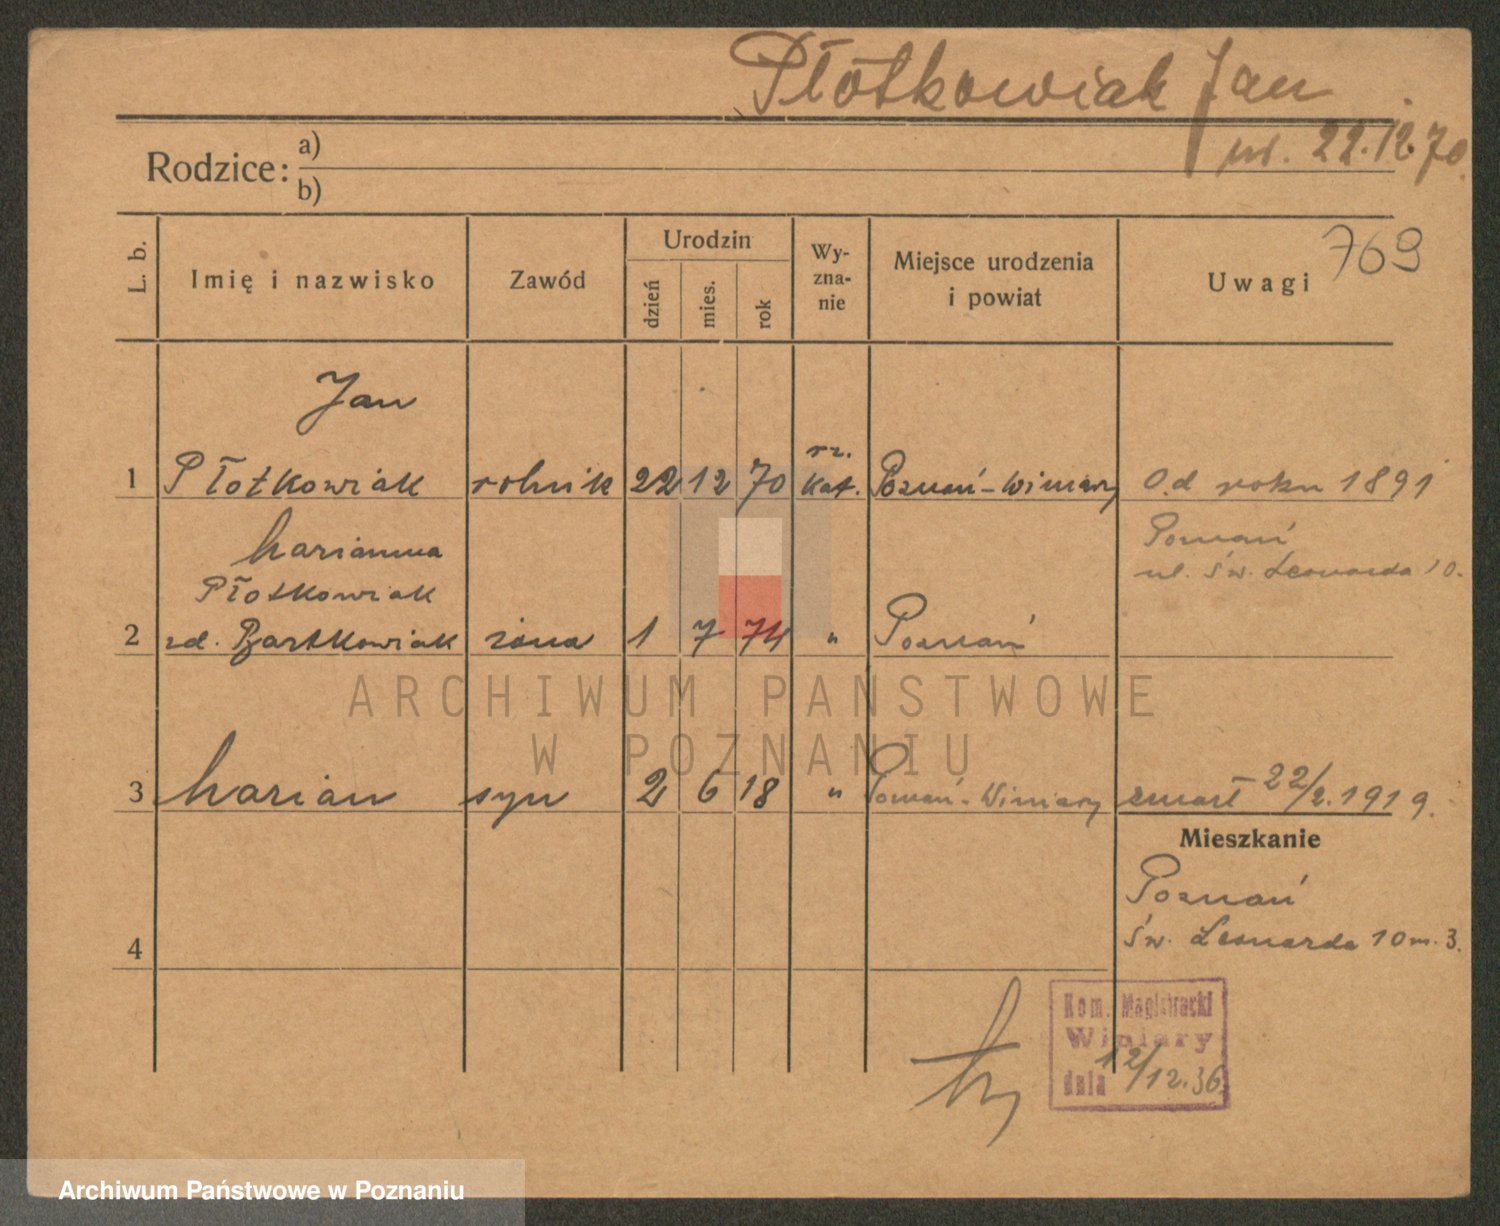 Płótkowiak Jan
ur. 22.12.70.
Rodzice: a)
b)
769
L. b. Imię i nazwisko Zawód Urodzin dzień mies. rok Wy-zna-nie Miejsce urodzenia i powiat Uwagi
Jan
1 Płotkowiak rolnik 22 12 70 rz. kat. Poznań-Winiary Od roku 1891
Marianna Poznań
Płotkowiak ul. Św. Leonarda 10.
2 zd. Bartkowiak żona 1 7 74 " Poznań
3 Marian syn 2 6 18 " Poznań-Winiary zmarł 22/2.1919.
Mieszkanie
Poznań
4 Św. Leonarda 10 m. 3.
Kom. Magistracki
Winiary
dnia 12/12.36
ARCHIWUM PAŃSTWOWE
W POZNANIU
Archiwum Państwowe w Poznaniu